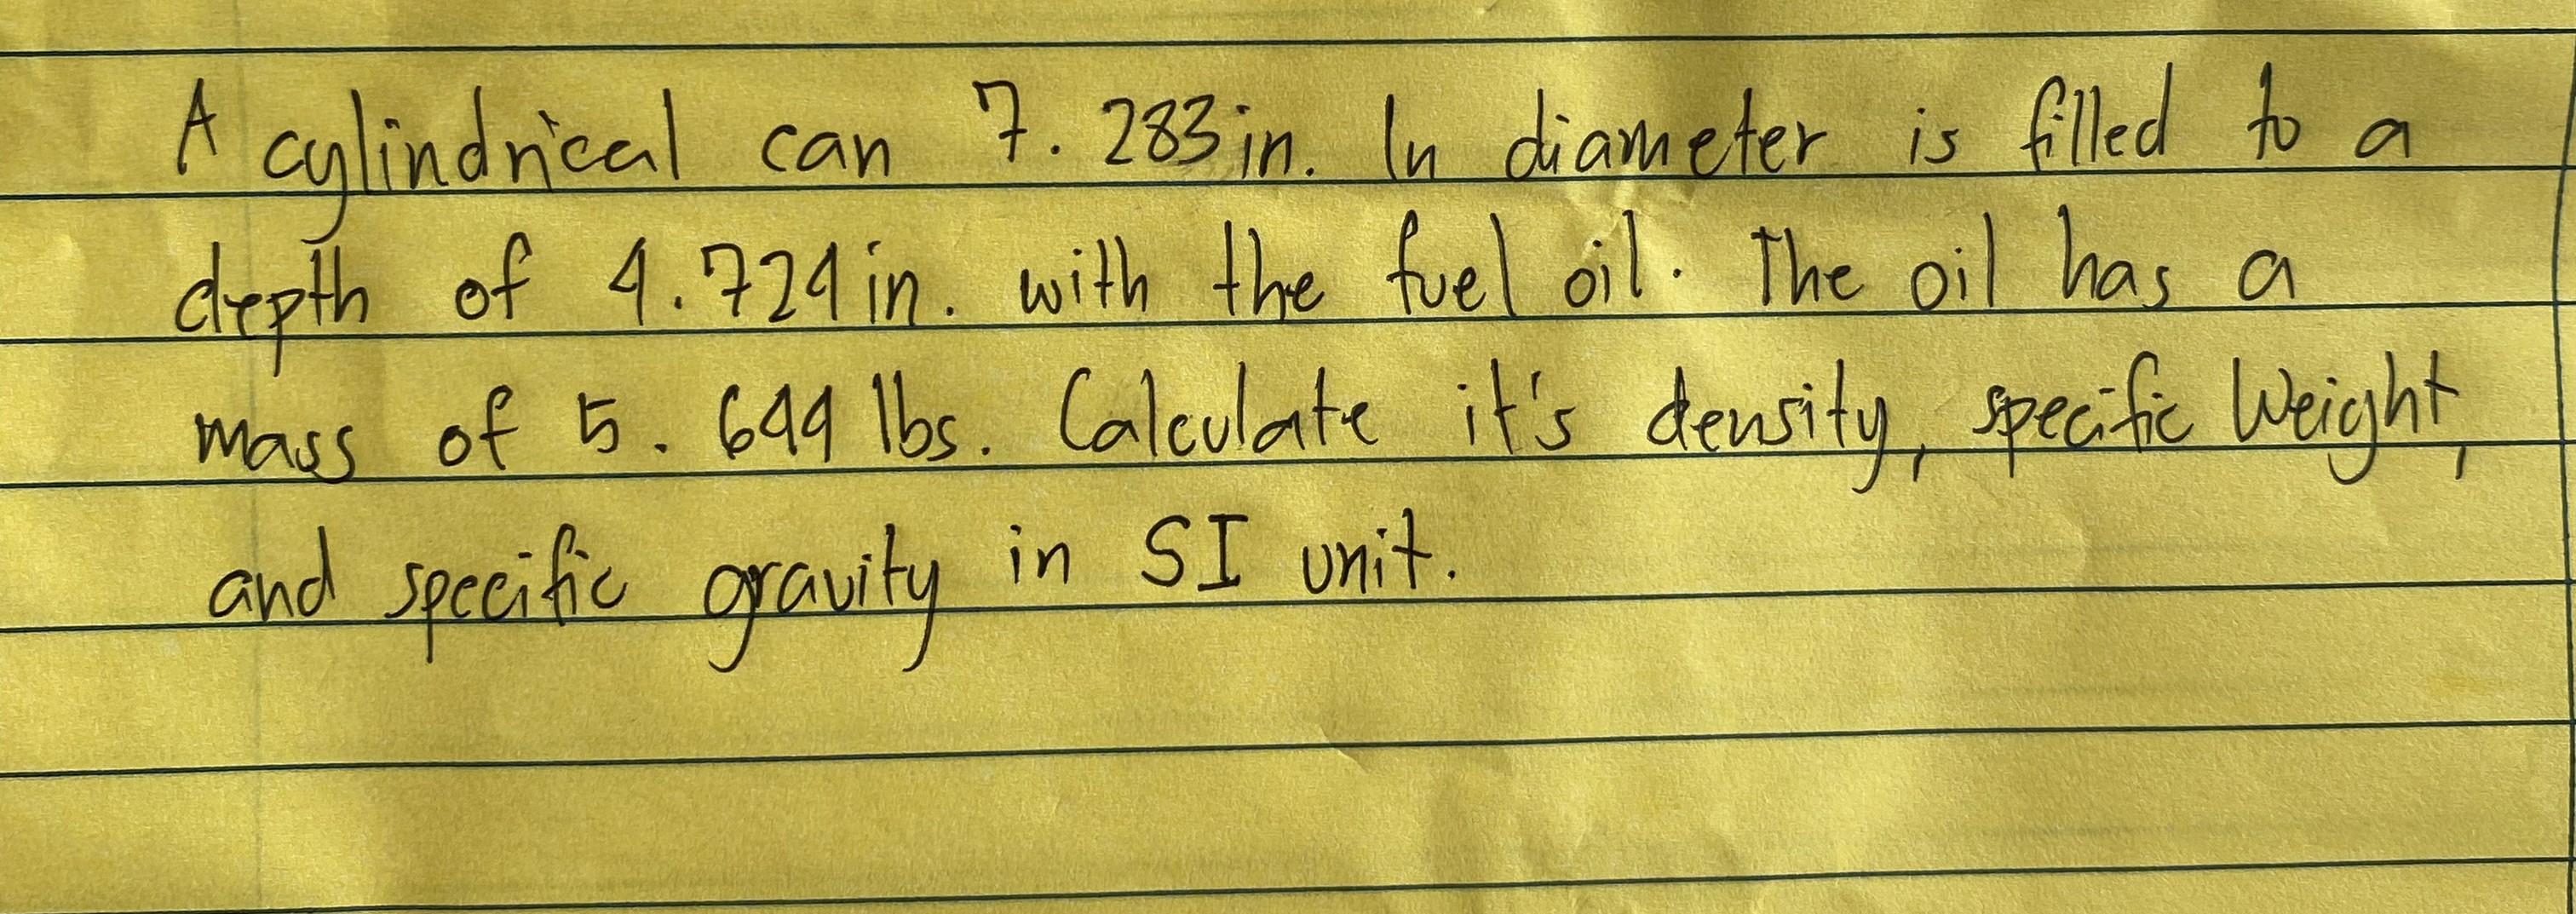 A cylindrical can 7.283in. In diameter is filled to a
depth of 4.724in. with the fuel oil. The oil has a
mass of 5.644 lbs. Calculate it's density, specific Weight,
and specific gravity in SI unit.